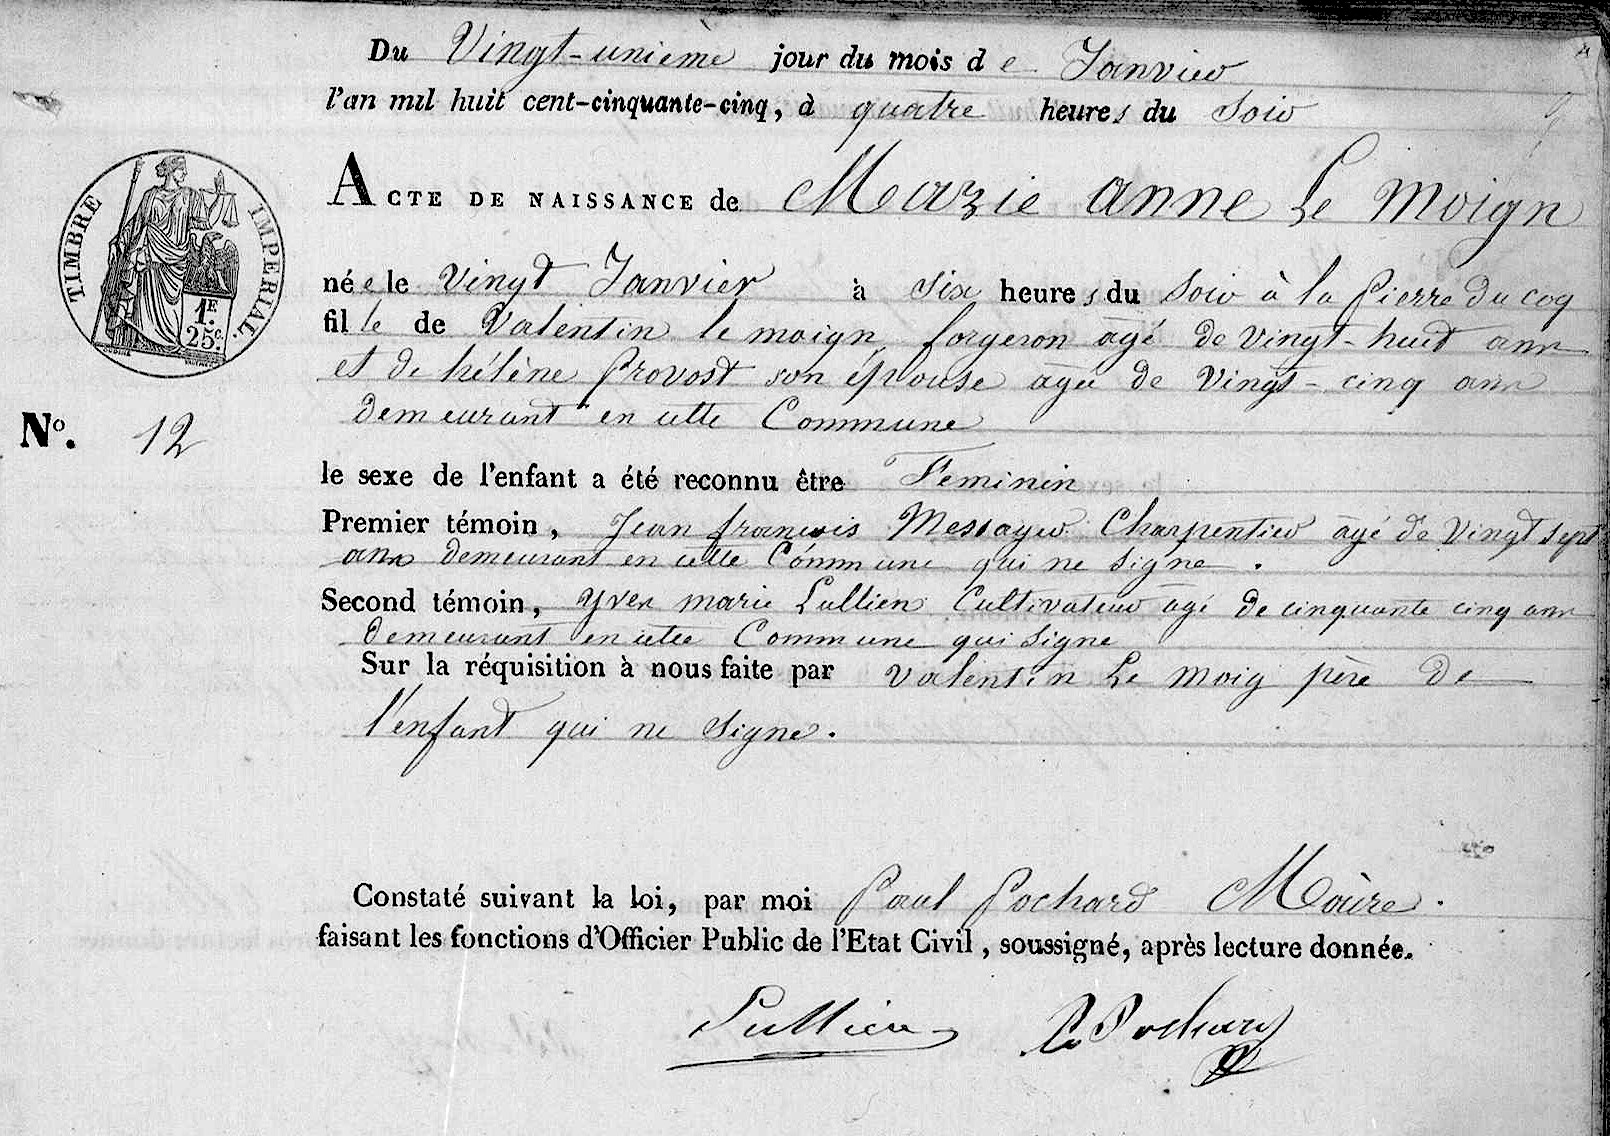 Du Vingt-unième jour du mois de Janvier
l'an mil huit cent-cinquante-cinq, à quatre heures du Soir
TIMBRE IMPERIAL.
1F. 25c.
ACTE DE NAISSANCE de Marie anne Le Moign
née le Vingt Janvier à Six heures du Soir à la Pierre du coq
fille de Valentin le moign forgeron agé de vingt-huit ans
et de hélène Provost son épouse agée de vingt-cinq ans
demeurant en cette Commune
No. 12
le sexe de l'enfant a été reconnu être Feminin
Premier témoin, Jean françois Messager Charpentier agé de Vingt sept
ans demeurant en cette Commune qui ne signe.
Second témoin, Yves marie Lullien Cultivateur agé de cinquante cinq ans
demeurant en cette Commune qui signe
Sur la réquisition à nous faite par Valentin Le moig père de
l'enfant qui ne signe.
Constaté suivant la loi, par moi Paul Pochard Maire.
faisant les fonctions d'Officier Public de l'Etat Civil, soussigné, après lecture donnée.
Lullien P. Pochard